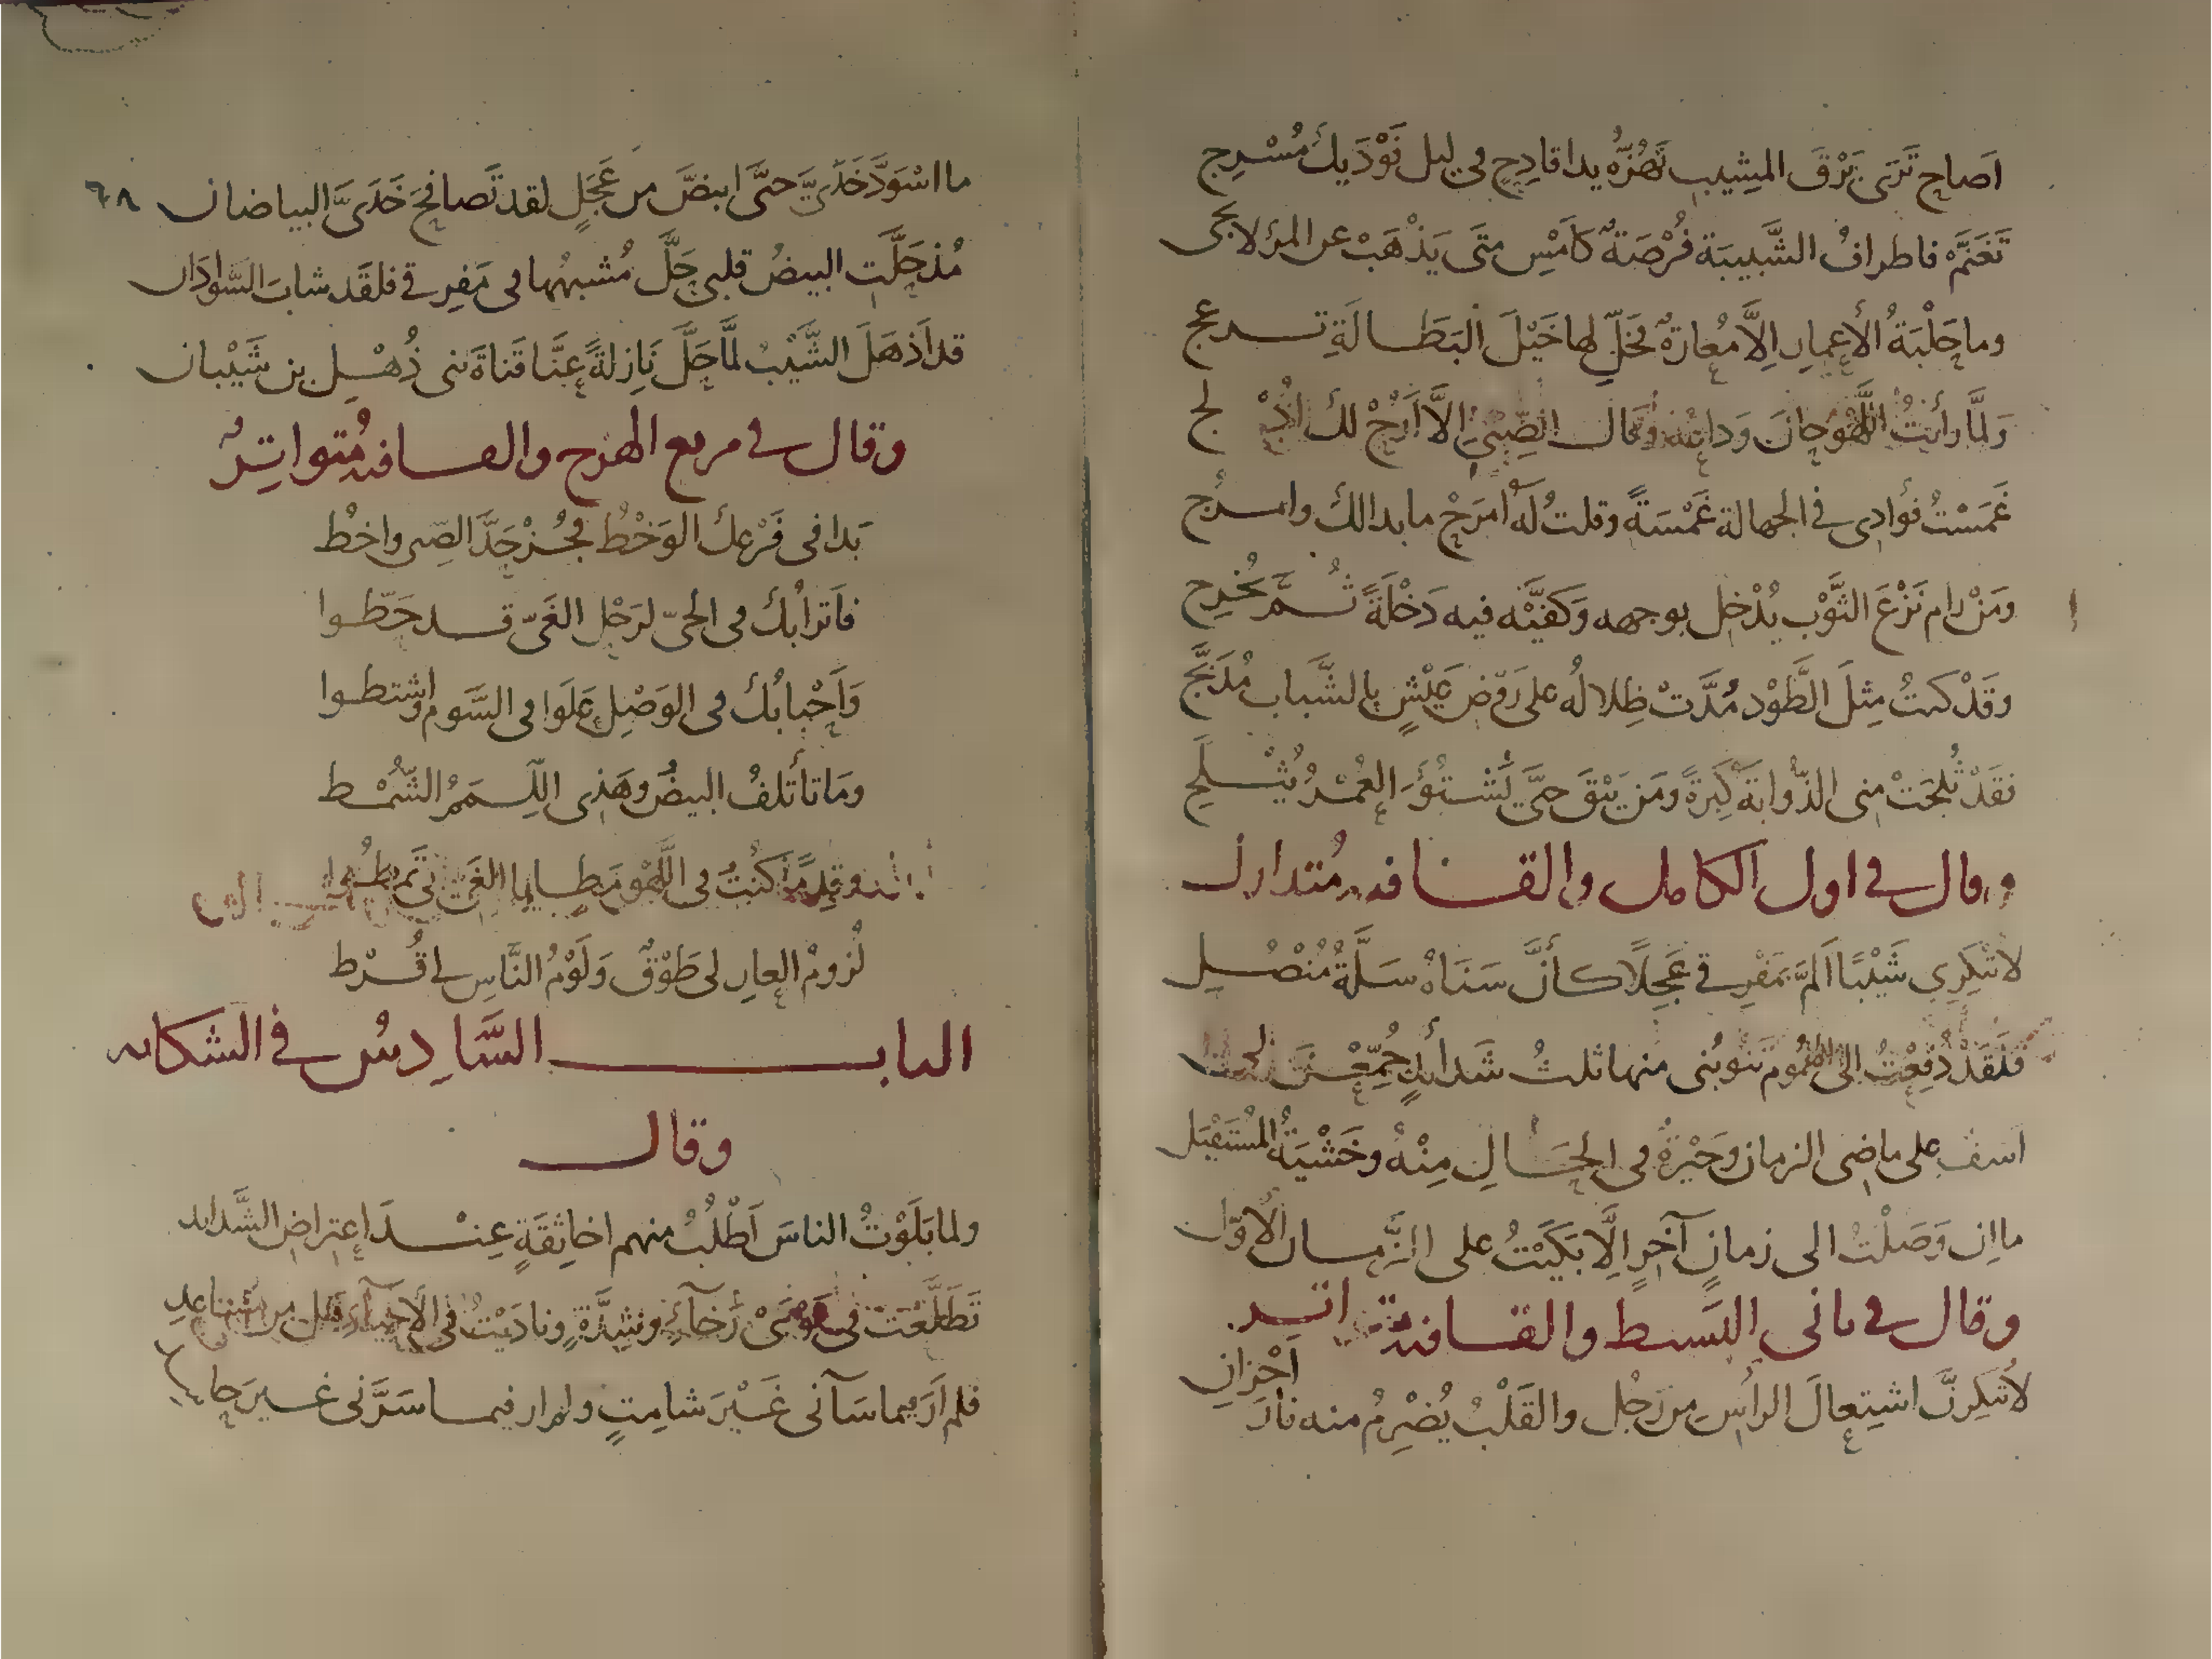 اَصاحِ تَرَى بَرْقَ المشِيبِ تَهُزُّه يدا قادِحٍ في ليل فَوْدَيك مُسْرِج
تَغَنَّمْ فاطرافُ الشَّبِيبَة فُرْصَةٌ كَأَمْسِ متَى يَذْهَبْ عن المرء لا يجى
وما حَلْبَةُ الأعمارِ اِلاَّ مُعارَةٌ تخَلِّ لها خَيْلَ البَطَالَةِ تمعج
وَلمَّا رأيتُ اللَّهْوَ حانَ وَداعُه وقال الصِّبَى اِلاَّ أَرُحْ لك أُدْلج
غَمَسْتُ فؤادى في الجهالة غَمْسَةً وقلتُ لَهُ امرَحْ ما بدا لك وامرُج
ومَنْ رام نَزْعَ الثَّوْب يُدْخِل بوجهه وَكفَّيْه فيه دَخْلَةً ثُمَّ يُخرِج
وقَدْ كنتُ مِثلَ الطَّوْد مُدَّتْ ظِلالُه على رَوْض عَيْشٍ بالشَّباب مُدَبَّج
فقَدْ ثُلِجَتْ منى الذُّوابَة كَبرَةً ومَن يَبْقَ حتَّى يَشْتُوَ العُمْرُ يُثْلَج
وقال في اول الكامل والقافيه مُتدارك
لا تنكِرِى شَيْبًا اَلمَّ بمَفْرِقى عَجِلاً كأنَّ سَنَاهُ سَلَّةُ مُنْصُلِ
فلَقَدْ دُفِعْتُ الى الهُموم تَنوبُنى منها ثلثُ شَدائدٍ جُمِّعْنَ لى
اسَفٌ على ماضى الزمان وحَيْرةٌ في الحَالِ مِنْهُ وخَشْيَةُ المُستَقبَل
ما اِن وَصَلْتُ الى زمانٍ آخَرٍ اِلَّا بَكَيْتُ على الزَّمان الاوّل
وقال في ثانى البَسيط والقافية متواتر
لا تُنكِرنَّ اشتِعالَ الرأسِ من رَجُل والقَلْبُ يُضْرِمُ منه نارَ اَحْزانِ
٦٨
ما اسْوَدَّ خَدّىَ حتَّى ابيضَّ من عَجَلٍ لقد تَصافحَ خَدَىَّ البياضان
مُذ حَلَّت البيضُ قلبى حَلَّ مُشبهُها في مَفرِقى فلقَد شابَ السَّوادَان
قد اَذهَلَ الشَّيْبُ لمَّا حَلَّ نَازِلةً عنَّا قَناةَ بَنى ذُهْلِ بن شَيْبان
وقال في مربع الهزج والقافيه مُتواتِرٌ
بَدا في فَرْعك الوَخْطُ فجُز حَدَّ الصّبى واخطُ
فاَترابُك في الحىّ لرَحْل الغَىّ قد حَطّوا
وَاَحْبابُك في الوَصْلِ غَلَوا في السَّوم واشتطوا
ومَا تأتلفُ البيضُ وهَذى اللِّمَمُ الشُّمْط
وقِدمًا كنُتُ في اللَّهْو مَطايا الغَىّ تَمطُو
لُزومُ العارِ لى طَوْقٌ وَلَوْمُ النَّاسِ لى قُرْط
الباب السَّادِسُ في الشكايه
وقال
ولما بَلَوْتُ الناسَ اَطْلُبُ منهم اخا ثِقَةٍ عِنْدَ اعتراض الشَّدايد
تَطَلَّعْتُ في يَوْمَىْ رَخآءٍ وشِدَّةٍ ونادَيْتُ في الأحيآء هَل من مُساعِد
فلم اَرَ فيما سَآنى غَيْرَ شامِتٍ ولم ار فيما سَرَّنى غير حاسد